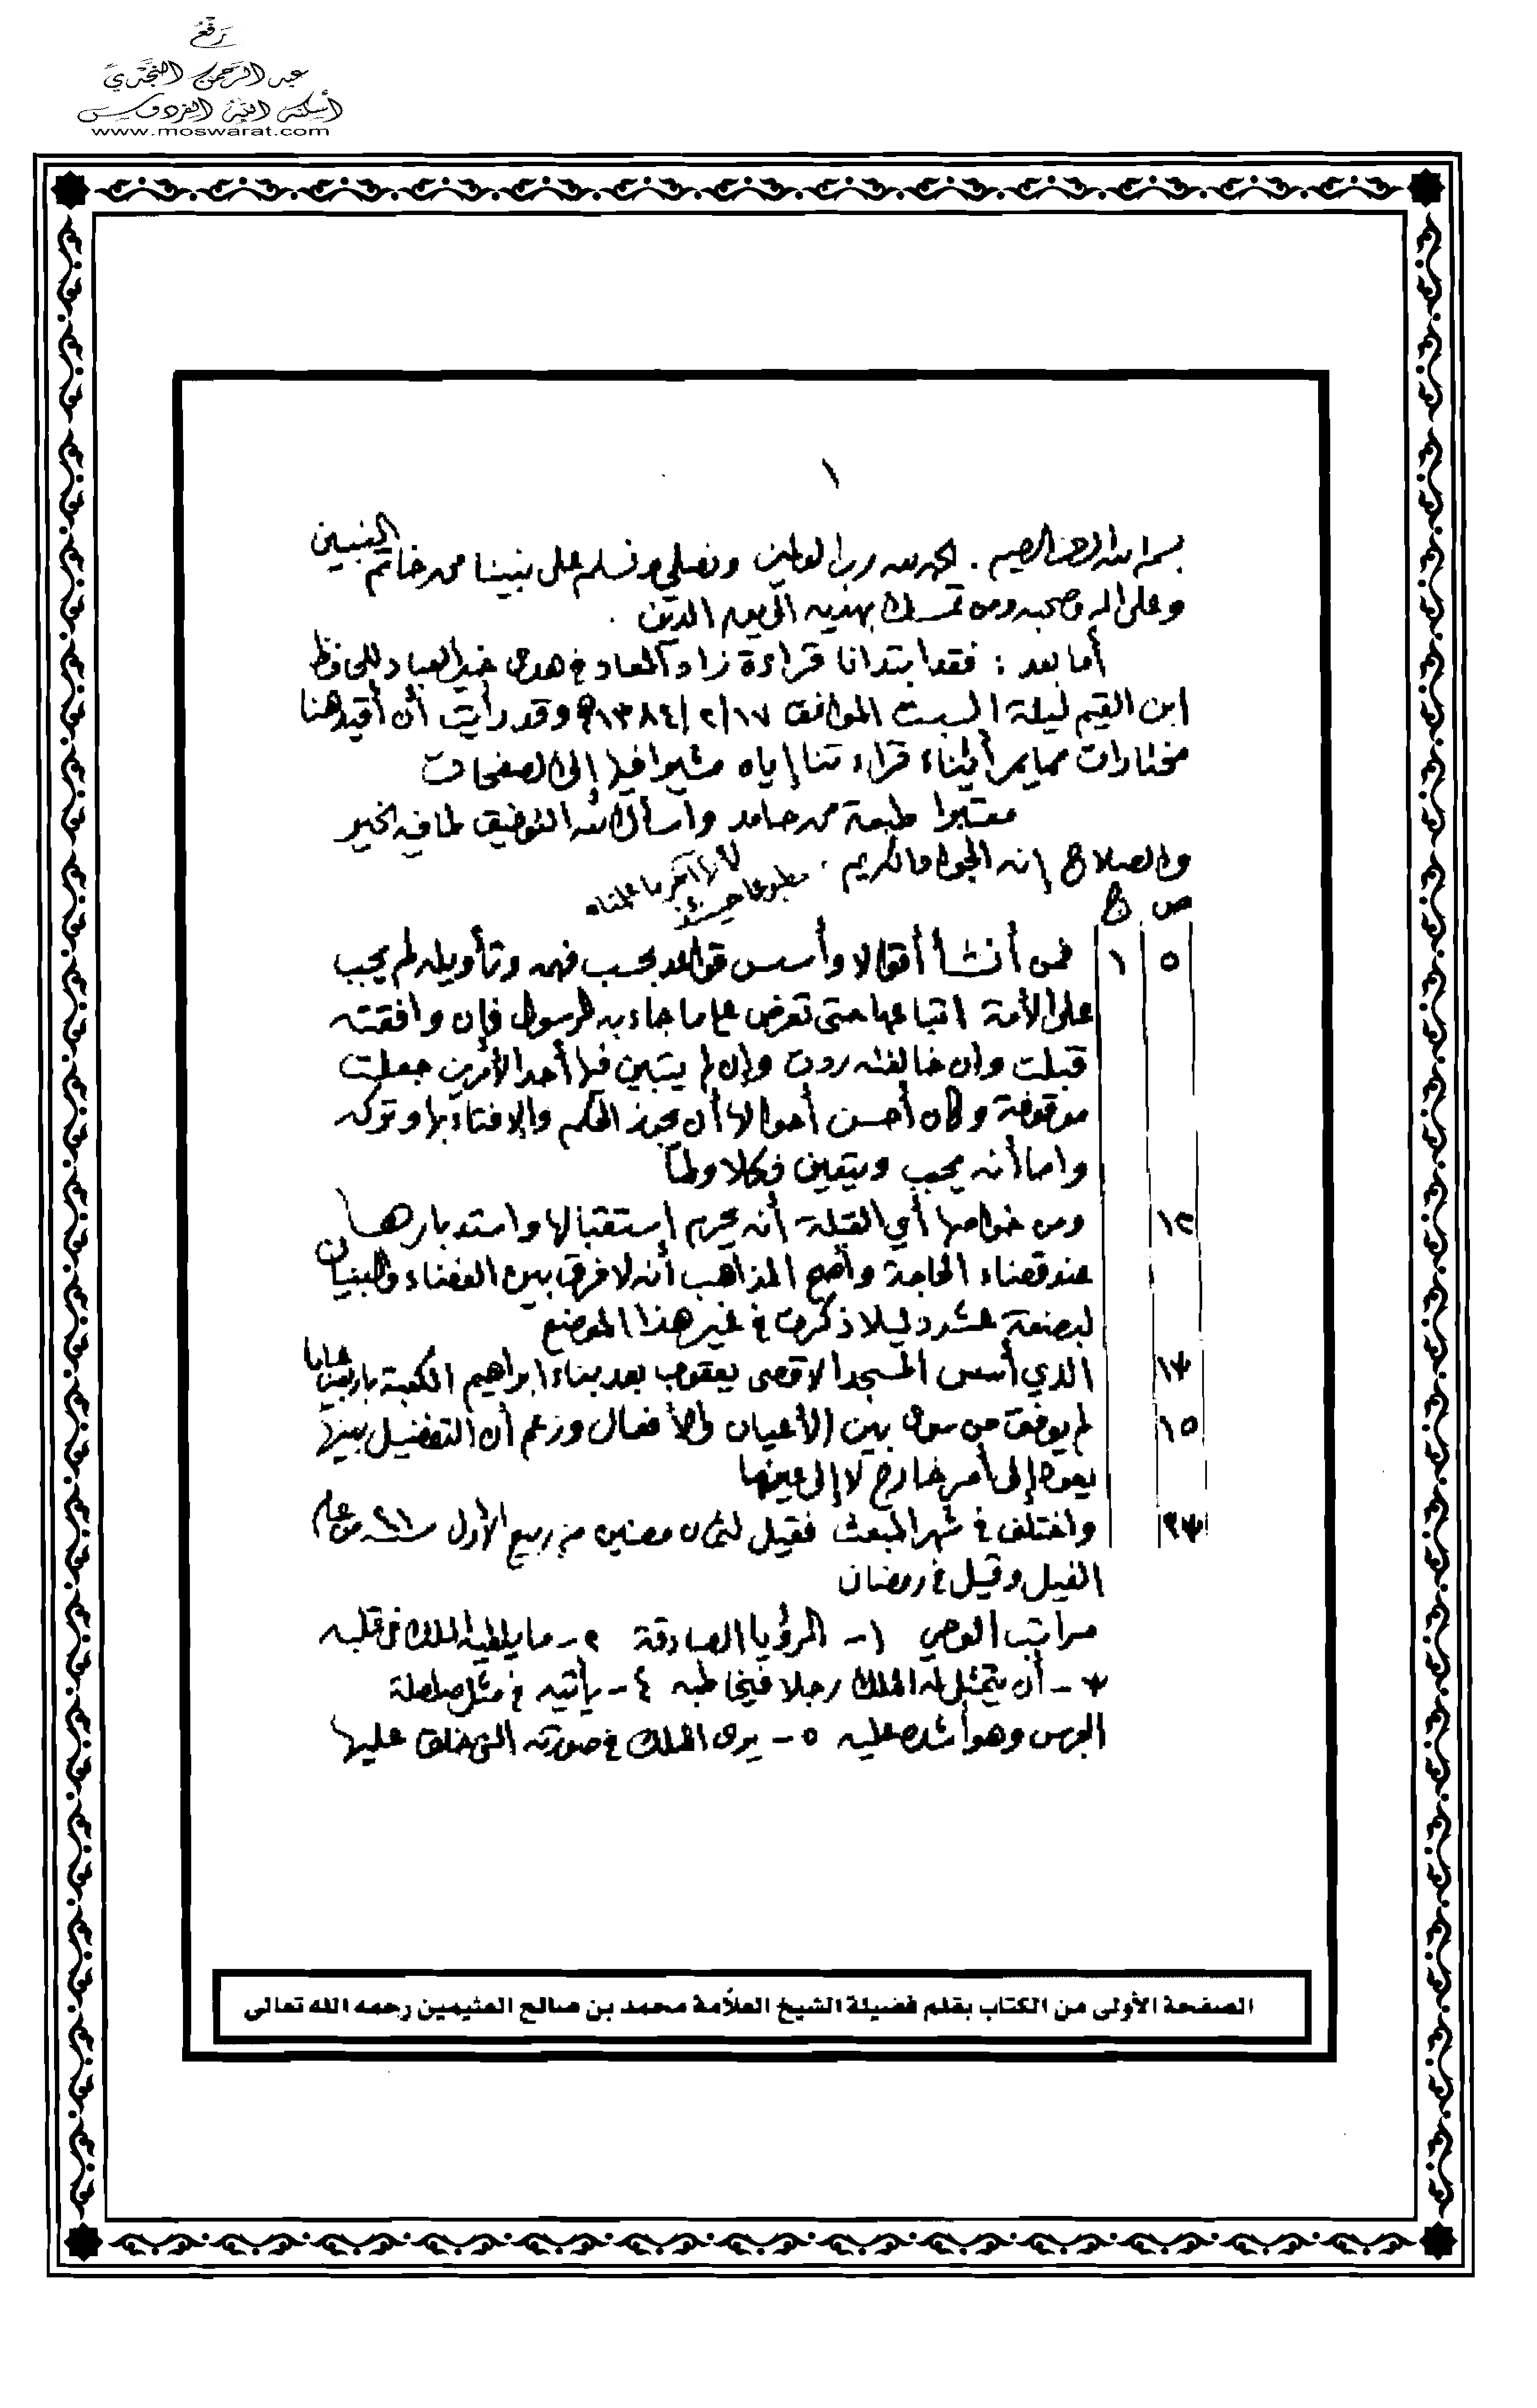 رفع
عبد الرحمن النجدي
أسكنه الله الفردوس
www.moswarat.com
١
بسم الله الرحمن الرحيم . الحمد لله رب العالمين ونصلي ونسلم على نبينا محمد خاتم النبيين
وعلى آله وصحبه ومن تمسك بهديه الى يوم الدين .
أما بعد : فقد ابتدانا قراءة زاد المعاد في هدى خير العباد للحافظ
ابن القيم ليلة السبت الموافق ١٣٨٤/٢/١٧هـ وقد رأيت أن أقيد هنا
مختارات مما يمر أثناء قراءتنا إياه مشيرا فيها إلى الصفحات
معتبرا طبعة محمد حامد وأسأل الله التوفيق لما فيه الخير
والصلاح إنه الجواد الكريم .
لأنها آخر ما علمناه
مطبوعا حينئذ
ص ج
٥ ١ فمن أنشأ أقوالا وأسس قواعد بحسب فهمه وتأويله لم يجب
على الأمة اتباعها حتى تعرض على ما جاء به الرسول فإن وافقته
قبلت وإن خالفته ردت وإن لم يتبين فيها أحد الأمرين جعلت
موقوفة وكان أحسن أحوالها أن يجوز الحكم والإفتاء بها وتركه
واما أنه يجب ويتعين فكلا ولما
١٢ ومن خواصها أي القبلة أنه يحرم إستقبالها واستدبارها
عند قضاء الحاجة وأصح المذاهب أنه لا فرق بين الفضاء والبنيان
لبضعة عشر دليلا ذكرت في غير هذا الموضع
١٣ الذي أسس المسجد الاقصى يعقوب بعد بناء ابراهيم الكعبة باربعين عاما
١٥ لم يوفق من سوى بين الأعيان والأفعال وزعم أن التفضيل بينها
يعود إلى أمر خارج لا إلى عينها
٢٣ واختلف في شهر المبعث فقيل لثمان مضين من ربيع الأول من عام
الفيل وقيل في رمضان
مراتب الوحي ١- الرؤيا الصادقة ٢- ما يلقيه الملك في قلبه
٣- أن يتمثل له الملك رجلا فيخاطبه ٤- يأتيه في مثل صلصلة
الجرس وهو أشده عليه ٥- يرى الملك في صورته التي خلق عليها
الصفحة الأولى من الكتاب بقلم فضيلة الشيخ العلاّمة محمد بن صالح العثيمين رحمه الله تعالى